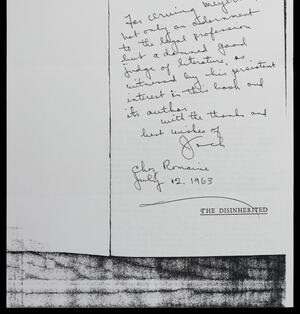 For Irving Meyers,
not only an adornment
to the legal profession
but a damned good
judge of literature, as
witnessed by his persistent
interest in this book and
its author
with the thanks and
best wishes of
Jack
Chez Romaine
July 12, 1963
THE DISINHERITED